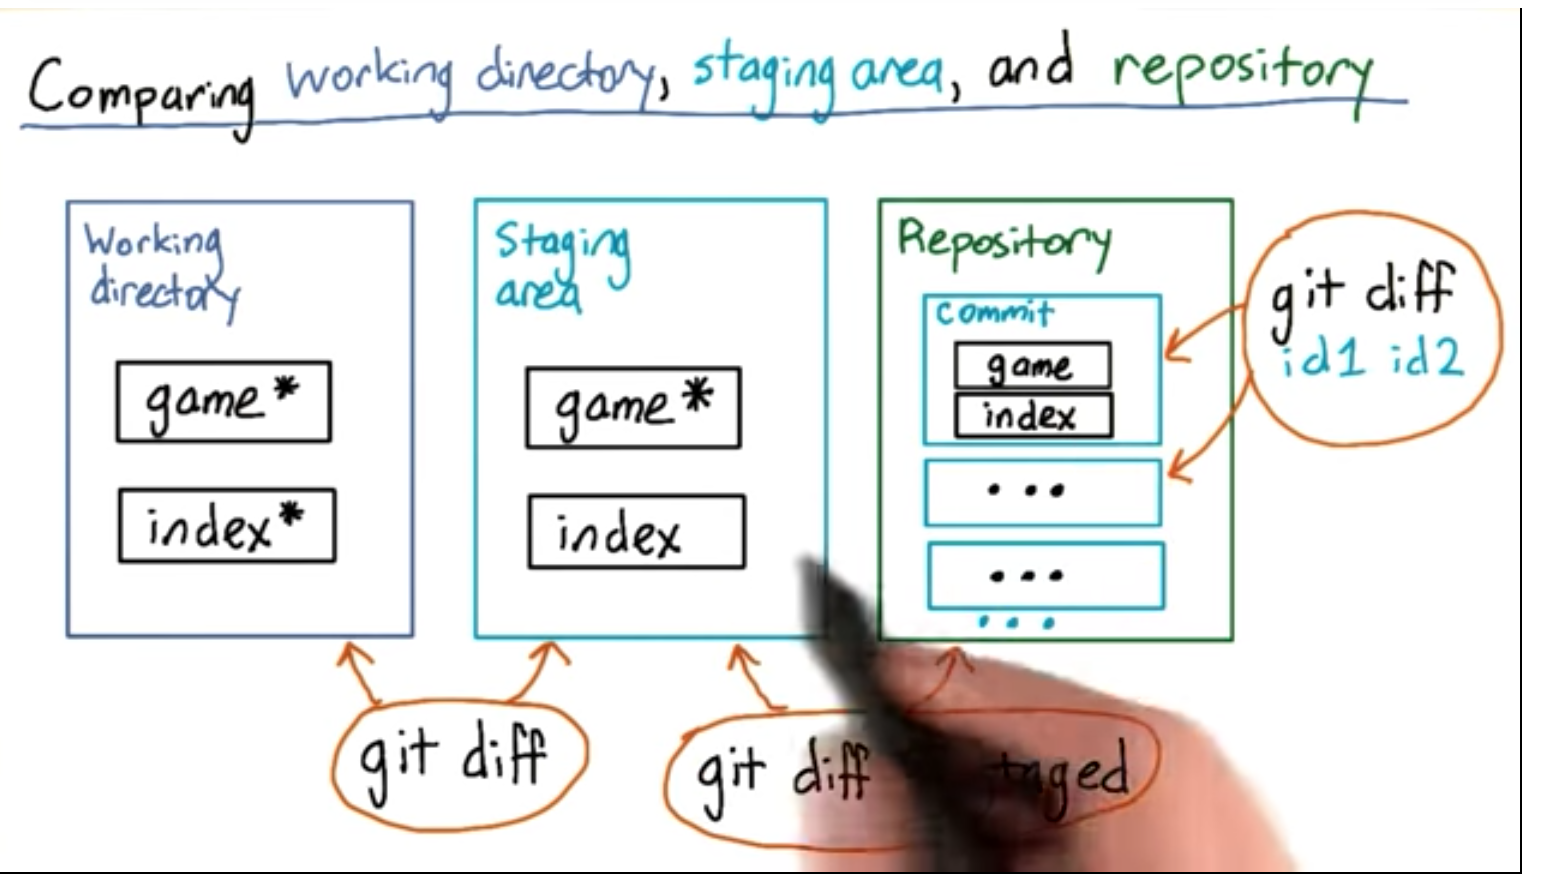 Comparing working directory, staging area, and repository
Working
directory
game*
index*
Staging
area
game*
index
Repository
commit
game
index
...
...
...
git diff
id1 id2
git diff
git diff